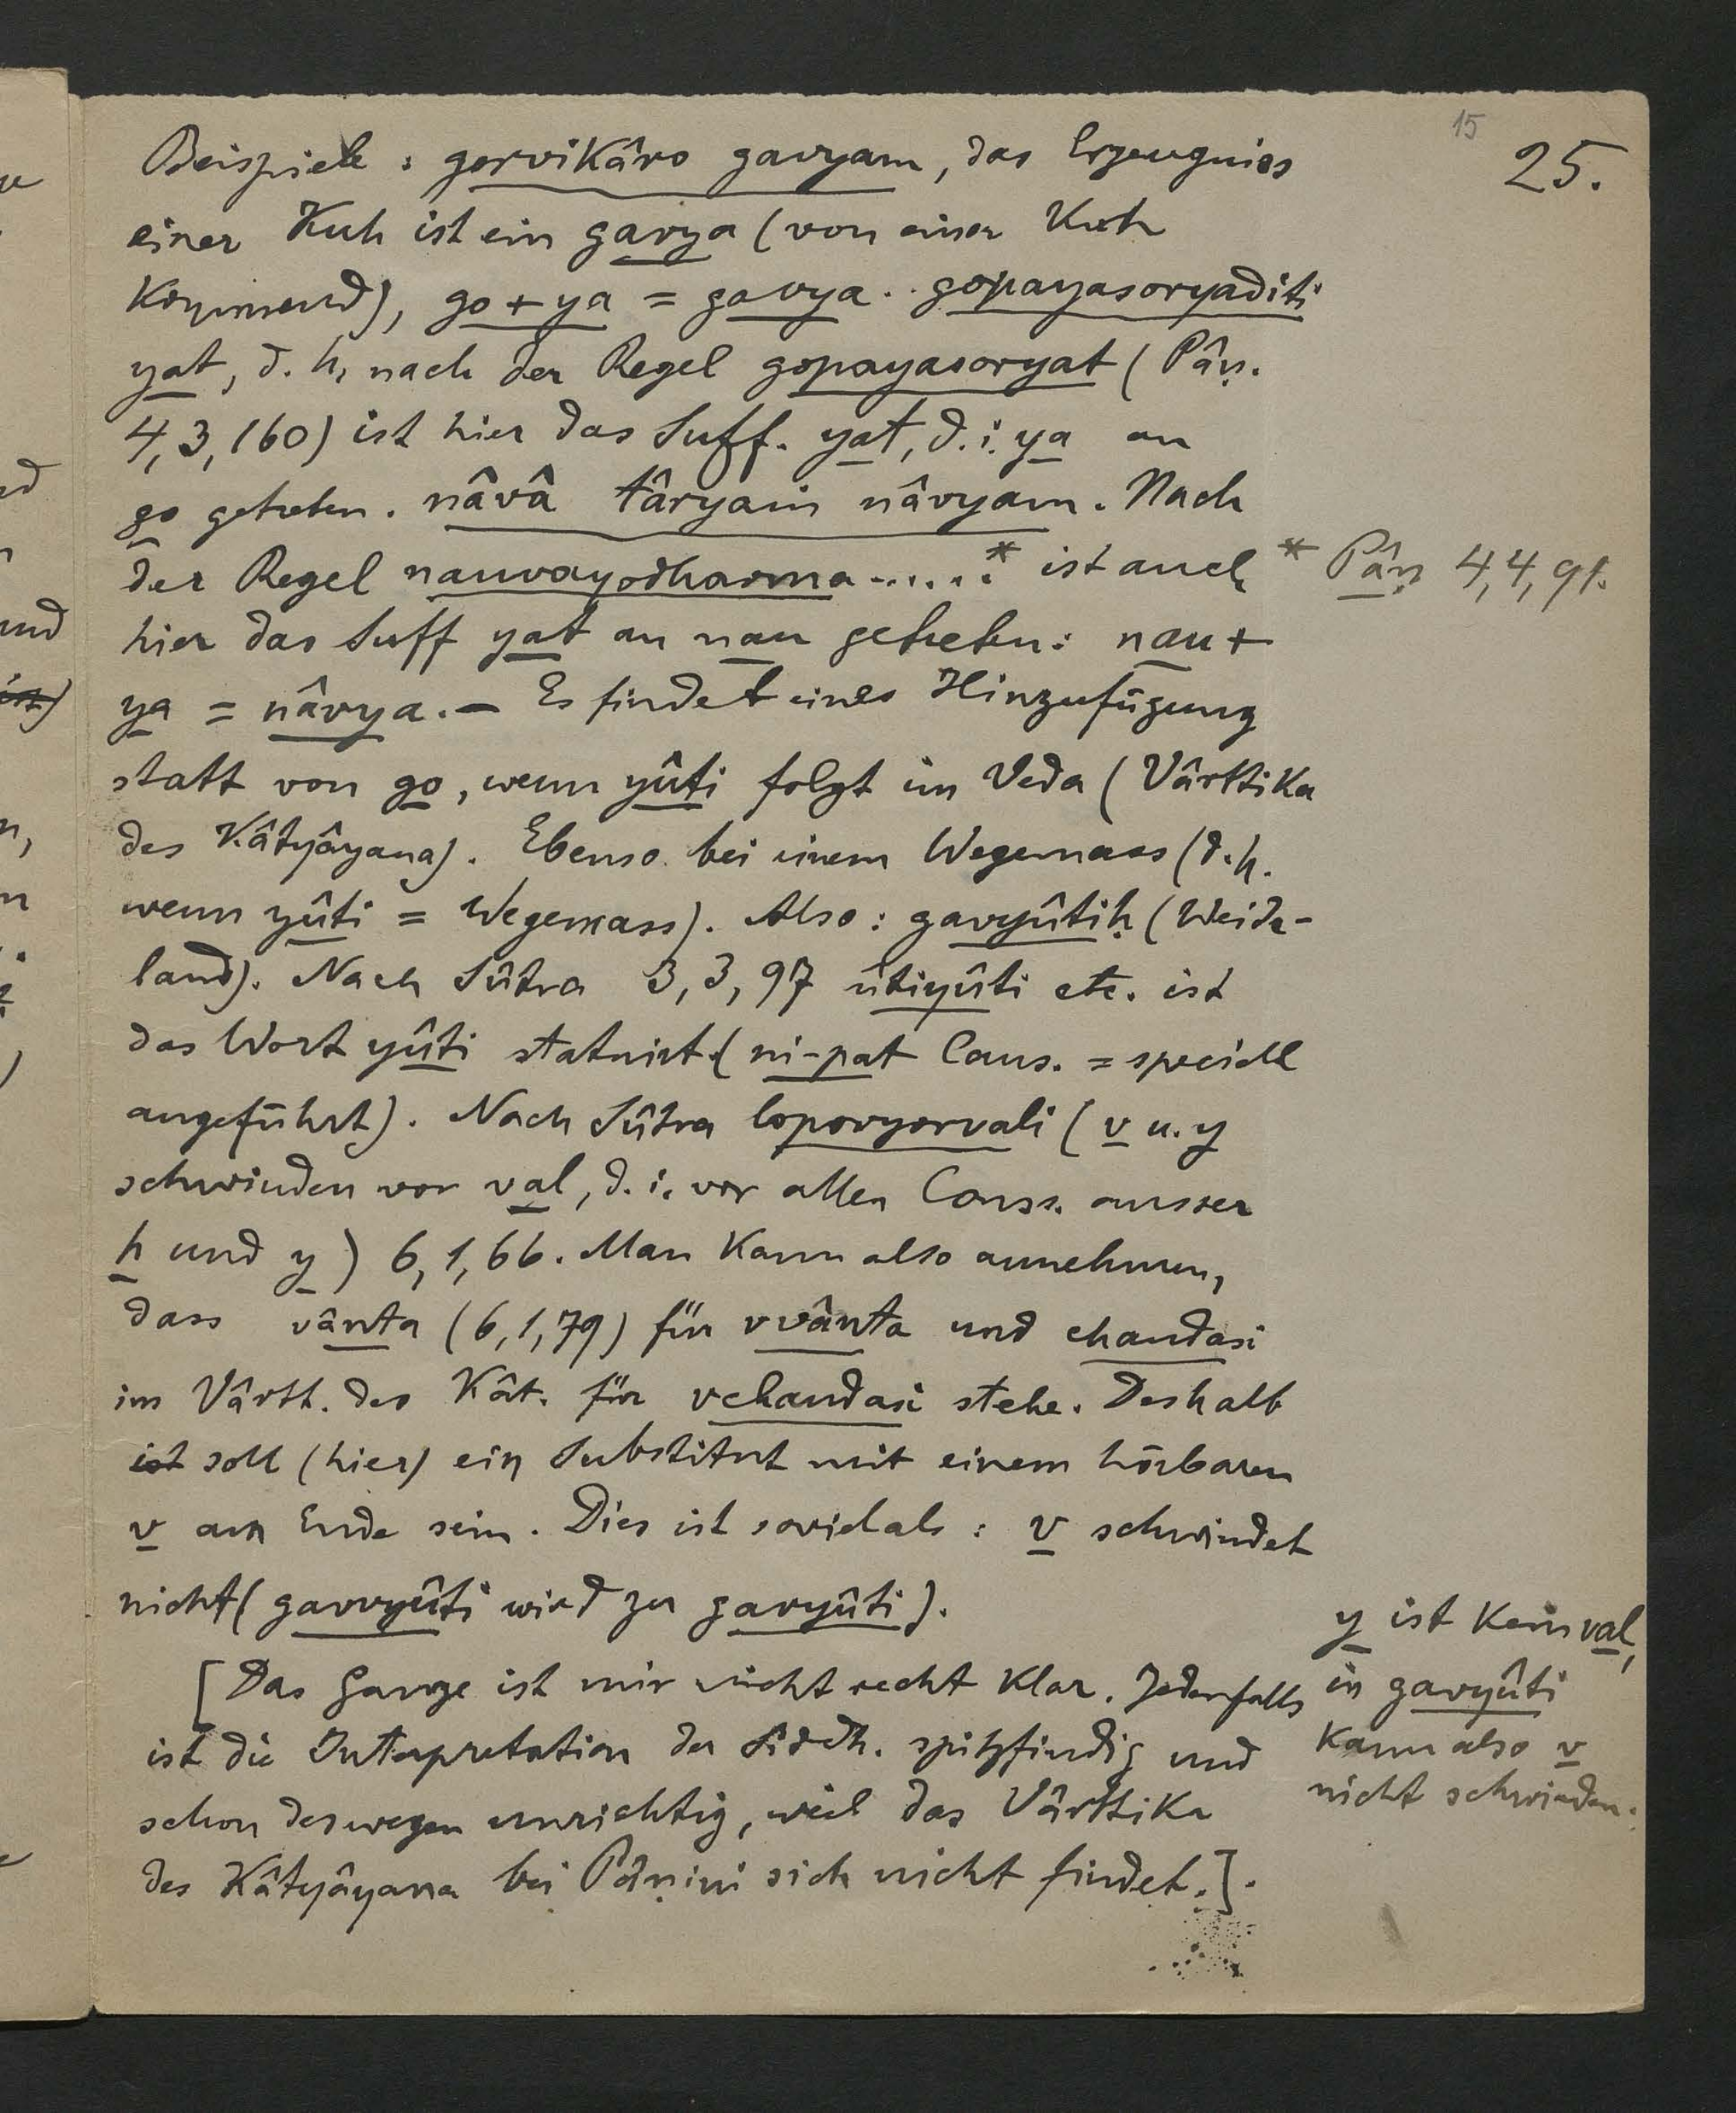 15
25.
Beispiele : gorvikâro gavyam, das Erzeugniss
einer Kuh ist ein gavya (von einer Kuh
kommend), go + ya = gavya. gopayasoryaditi
yat, d. h. nach der Regel gopayasoryat (Pâṇ.
4,3,160) ist hier das Suff. yat, d. i. ya an
go getreten. nâvâ târyam nâvyam. Nach
der Regel nauvayodharma......* ist auch
* Pâṇ 4,4,91.
hier das Suff yat an nau getreten: nau +
ya = nâvya. — Es findet eines Hinzufügung
statt von go, wenn yûti folgt im Veda (Vârttika
des Kâtyâyana). Ebenso bei einem Wegemass (d. h.
wenn yûti = Wegemass). Also : gavyûtiḥ (Weide-
land). Nach Sûtra 3,3,97 ûtiyûti etc. ist
das Wort yûti statuirt (ni-pat Caus. = speciell
angeführt). Nach Sûtra lopovyorvali (v u. y
schwinden vor val, d. i. vor allen Conss. ausser
h und y) 6,1,66. Man kann also annehmen,
dass vânta (6,1,79) für vvânta und chandasi
im Vârtt. des Kât. für vchandasi stehe. Deshalb
ist soll (hier) ein Substitut mit einem hörbaren
v am Ende sein. Dies ist soviel als : v schwindet
nicht (gavvyûti wird zu gavyûti).
[Das Ganze ist mir nicht recht klar. Jedenfalls
ist die Interpretation der Siddh. spitzfindig und
schon deswegen unrichtig, weil das Vârttika
des Kâtyâyana bei Pâṇini sich nicht findet.].
y ist kein val,
in gavyûti
kann also v
nicht schwinden.